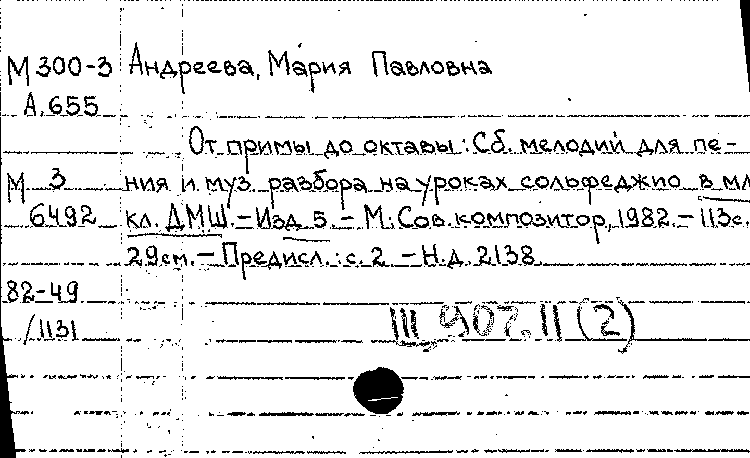 М 300-3 Андреева, Мария Павловна
А.655
От примы до октавы: Сб. мелодий для пе-
М 3 ния и муз. разбора на уроках сольфеджио в мл
6492 кл. ДМШ. - Изд 5. - М.: Сов. композитор, 1982. - 113с.
29см. - Предисл.: с. 2 - Н.д. 2138
82-49
/1131 III 907.II (2)